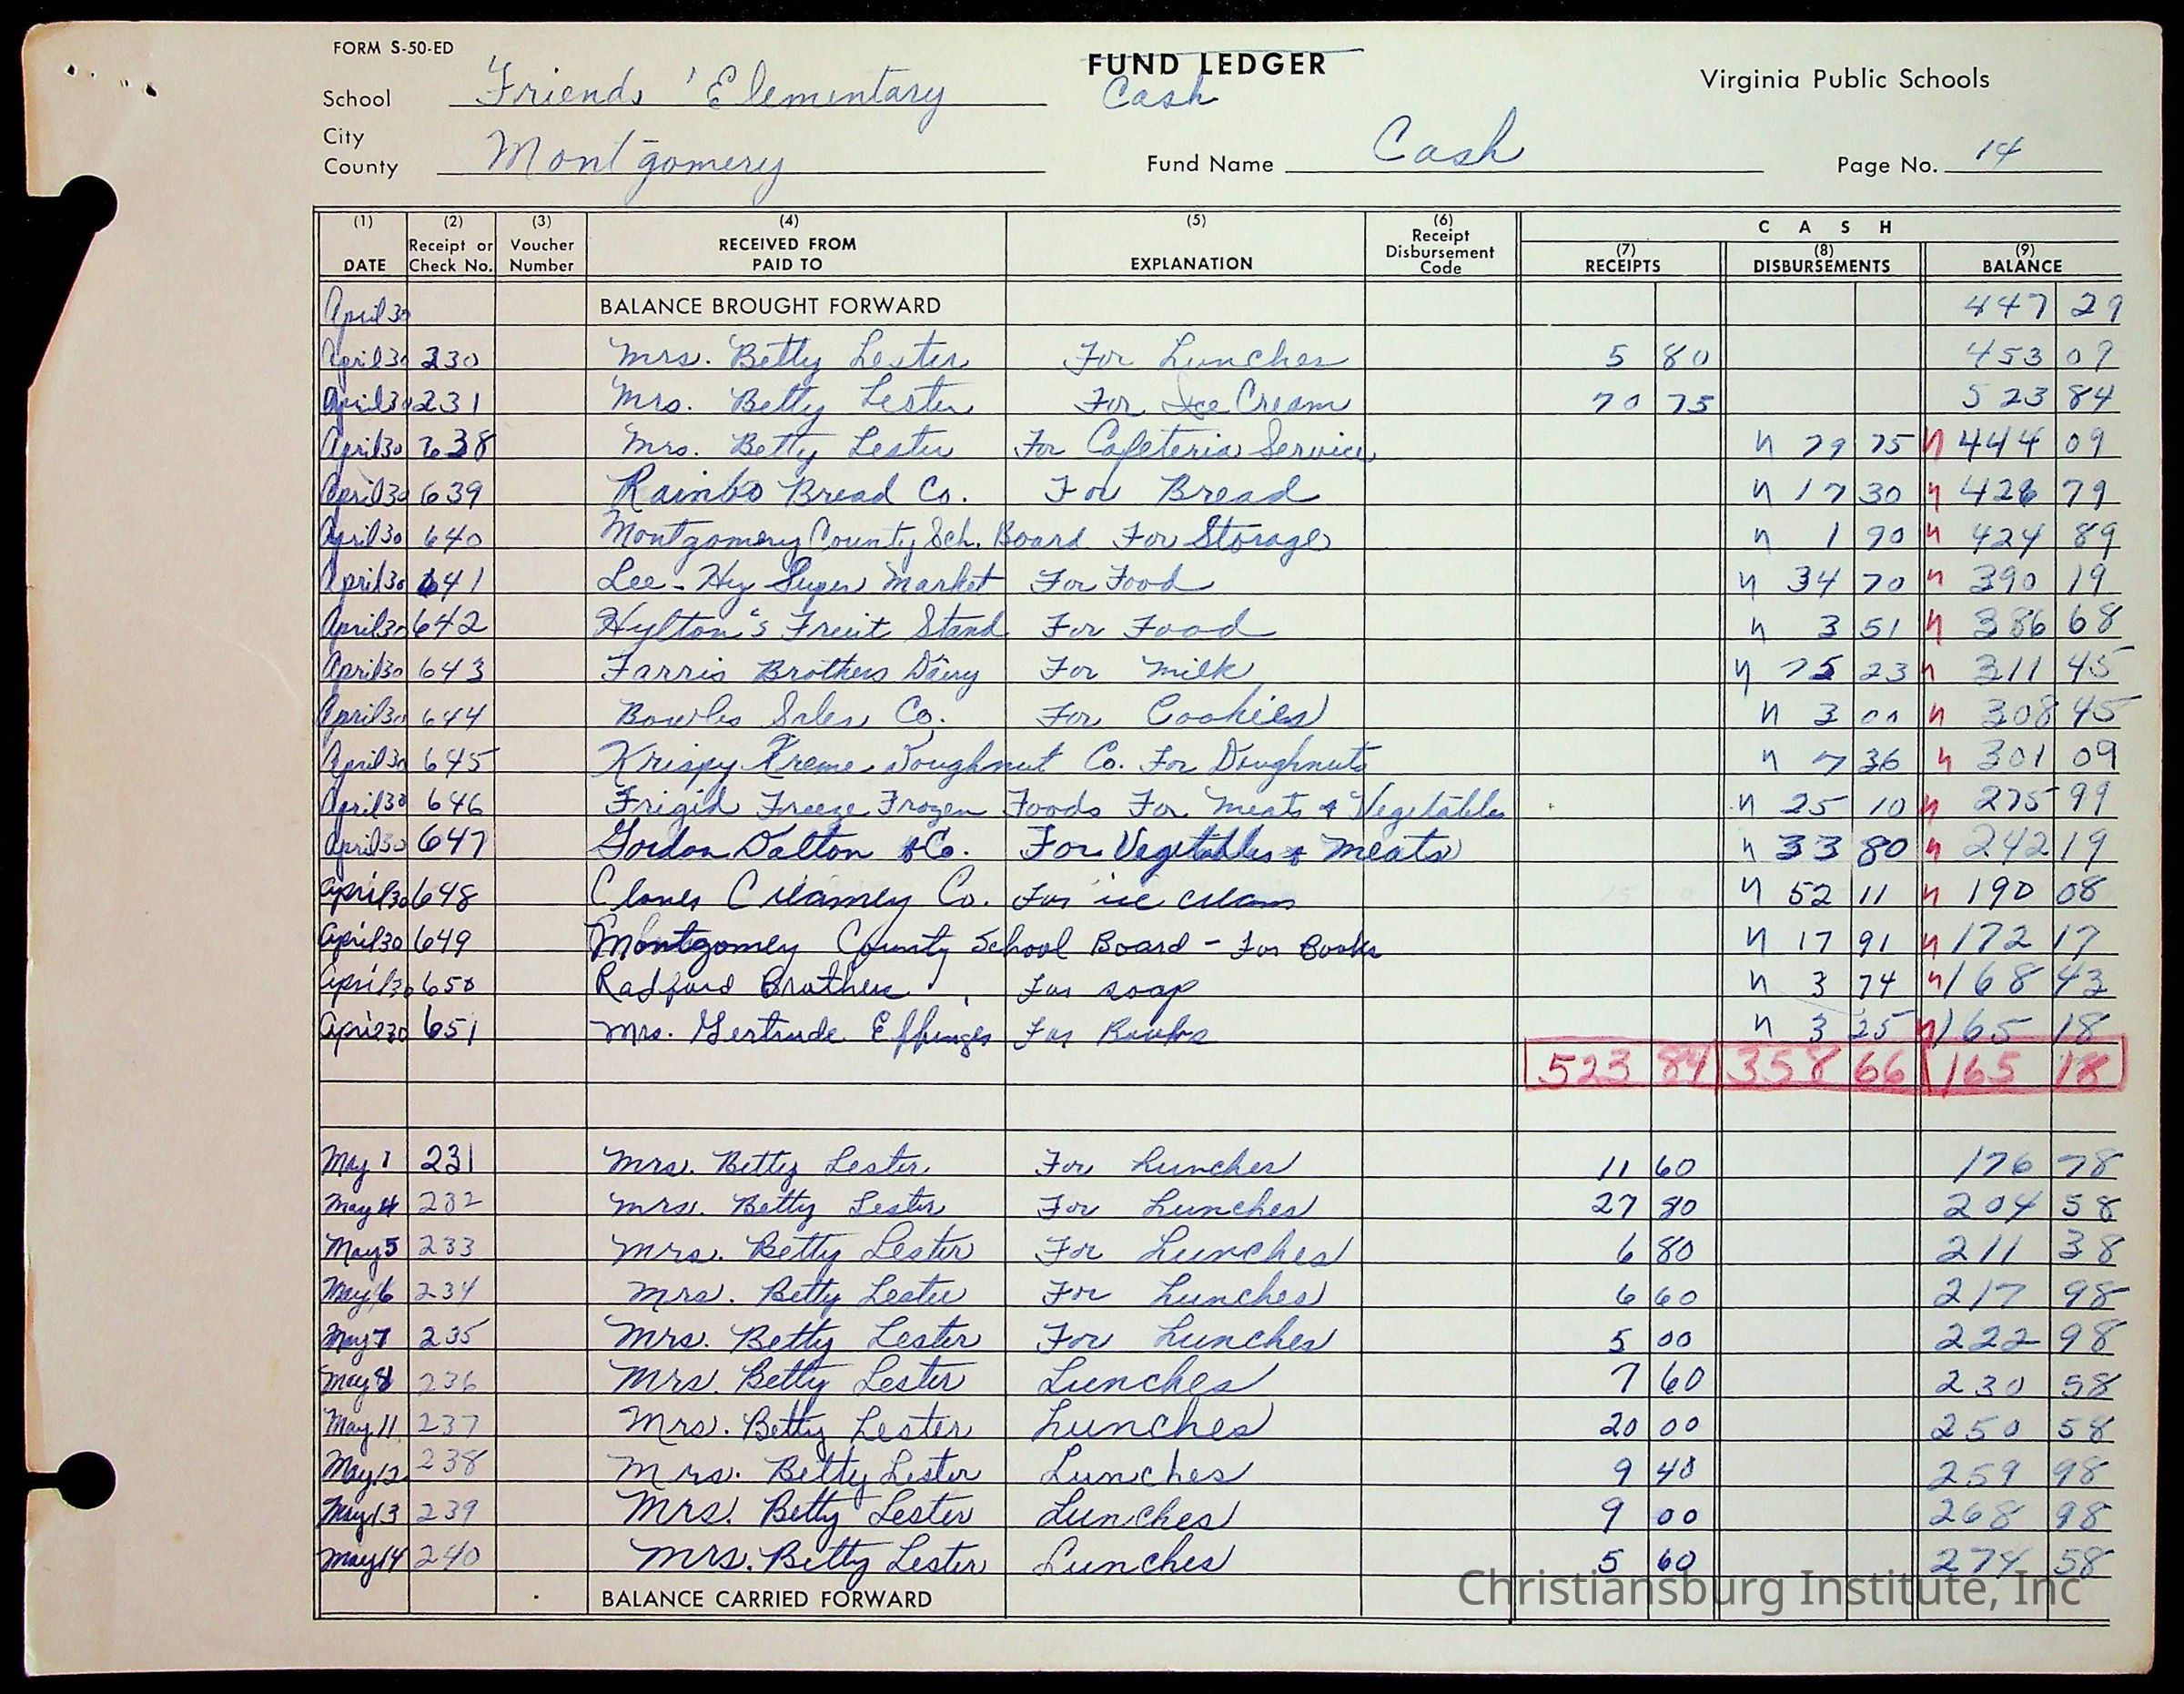 FORM S-50-ED
FUND LEDGER
Virginia Public Schools
School Friends' Elementary Cash
City
County Montgomery Fund Name Cash Page No. 14
(1) (2) (3) (4) (5) (6) C A S H
DATE Receipt or Check No. Voucher Number RECEIVED FROM PAID TO EXPLANATION Receipt Disbursement Code (7) RECEIPTS (8) DISBURSEMENTS (9) BALANCE
April 30 BALANCE BROUGHT FORWARD 447 29
April 30 230 Mrs. Betty Lester For Lunches 5 80 453 09
April 30 231 Mrs. Betty Lester For Ice Cream 70 75 523 84
April 30 638 Mrs. Betty Lester For Cafeteria Service 79 75 444 09
April 30 639 Rainbo Bread Co. For Bread 17 30 426 79
April 30 640 Montgomery County Sch. Board For Storage 1 90 424 89
April 30 641 Lee-Hy Super Market For Food 34 70 390 19
April 30 642 Hylton's Fruit Stand For Food 3 51 386 68
April 30 643 Farris Brothers Dairy For Milk 75 23 311 45
April 30 644 Bowles Sales Co. For Cookies 3 00 308 45
April 30 645 Krispy Kreme Doughnut Co. For Doughnuts 7 36 301 09
April 30 646 Frigid Freeze Frozen Foods For Meats & Vegetables 25 10 275 99
April 30 647 Gordon Dalton & Co. For Vegetables & Meats 33 80 242 19
April 30 648 Clover Creamey Co. For ice cream 52 11 190 08
April 30 649 Montgomey County School Board - For Books 17 91 172 17
April 30 650 Radford Brothers For soap 3 74 168 43
April 30 651 Mrs. Gertrude Effinger For Books 3 25 165 18
523 84 358 66 165 18
May 1 231 Mrs. Betty Lester For Lunches 11 60 176 78
May 4 232 Mrs. Betty Lester For Lunches 27 80 204 58
May 5 233 Mrs. Betty Lester For Lunches 6 80 211 38
May 6 234 Mrs. Betty Lester For Lunches 6 60 217 98
May 7 235 Mrs. Betty Lester For Lunches 5 00 222 98
May 8 236 Mrs. Betty Lester Lunches 7 60 230 58
May 11 237 Mrs. Betty Lester Lunches 20 00 250 58
May 12 238 Mrs. Betty Lester Lunches 9 40 259 98
May 13 239 Mrs. Betty Lester Lunches 9 00 268 98
May 14 240 Mrs. Betty Lester Lunches 5 60 274 58
BALANCE CARRIED FORWARD
Christiansburg Institute, Inc